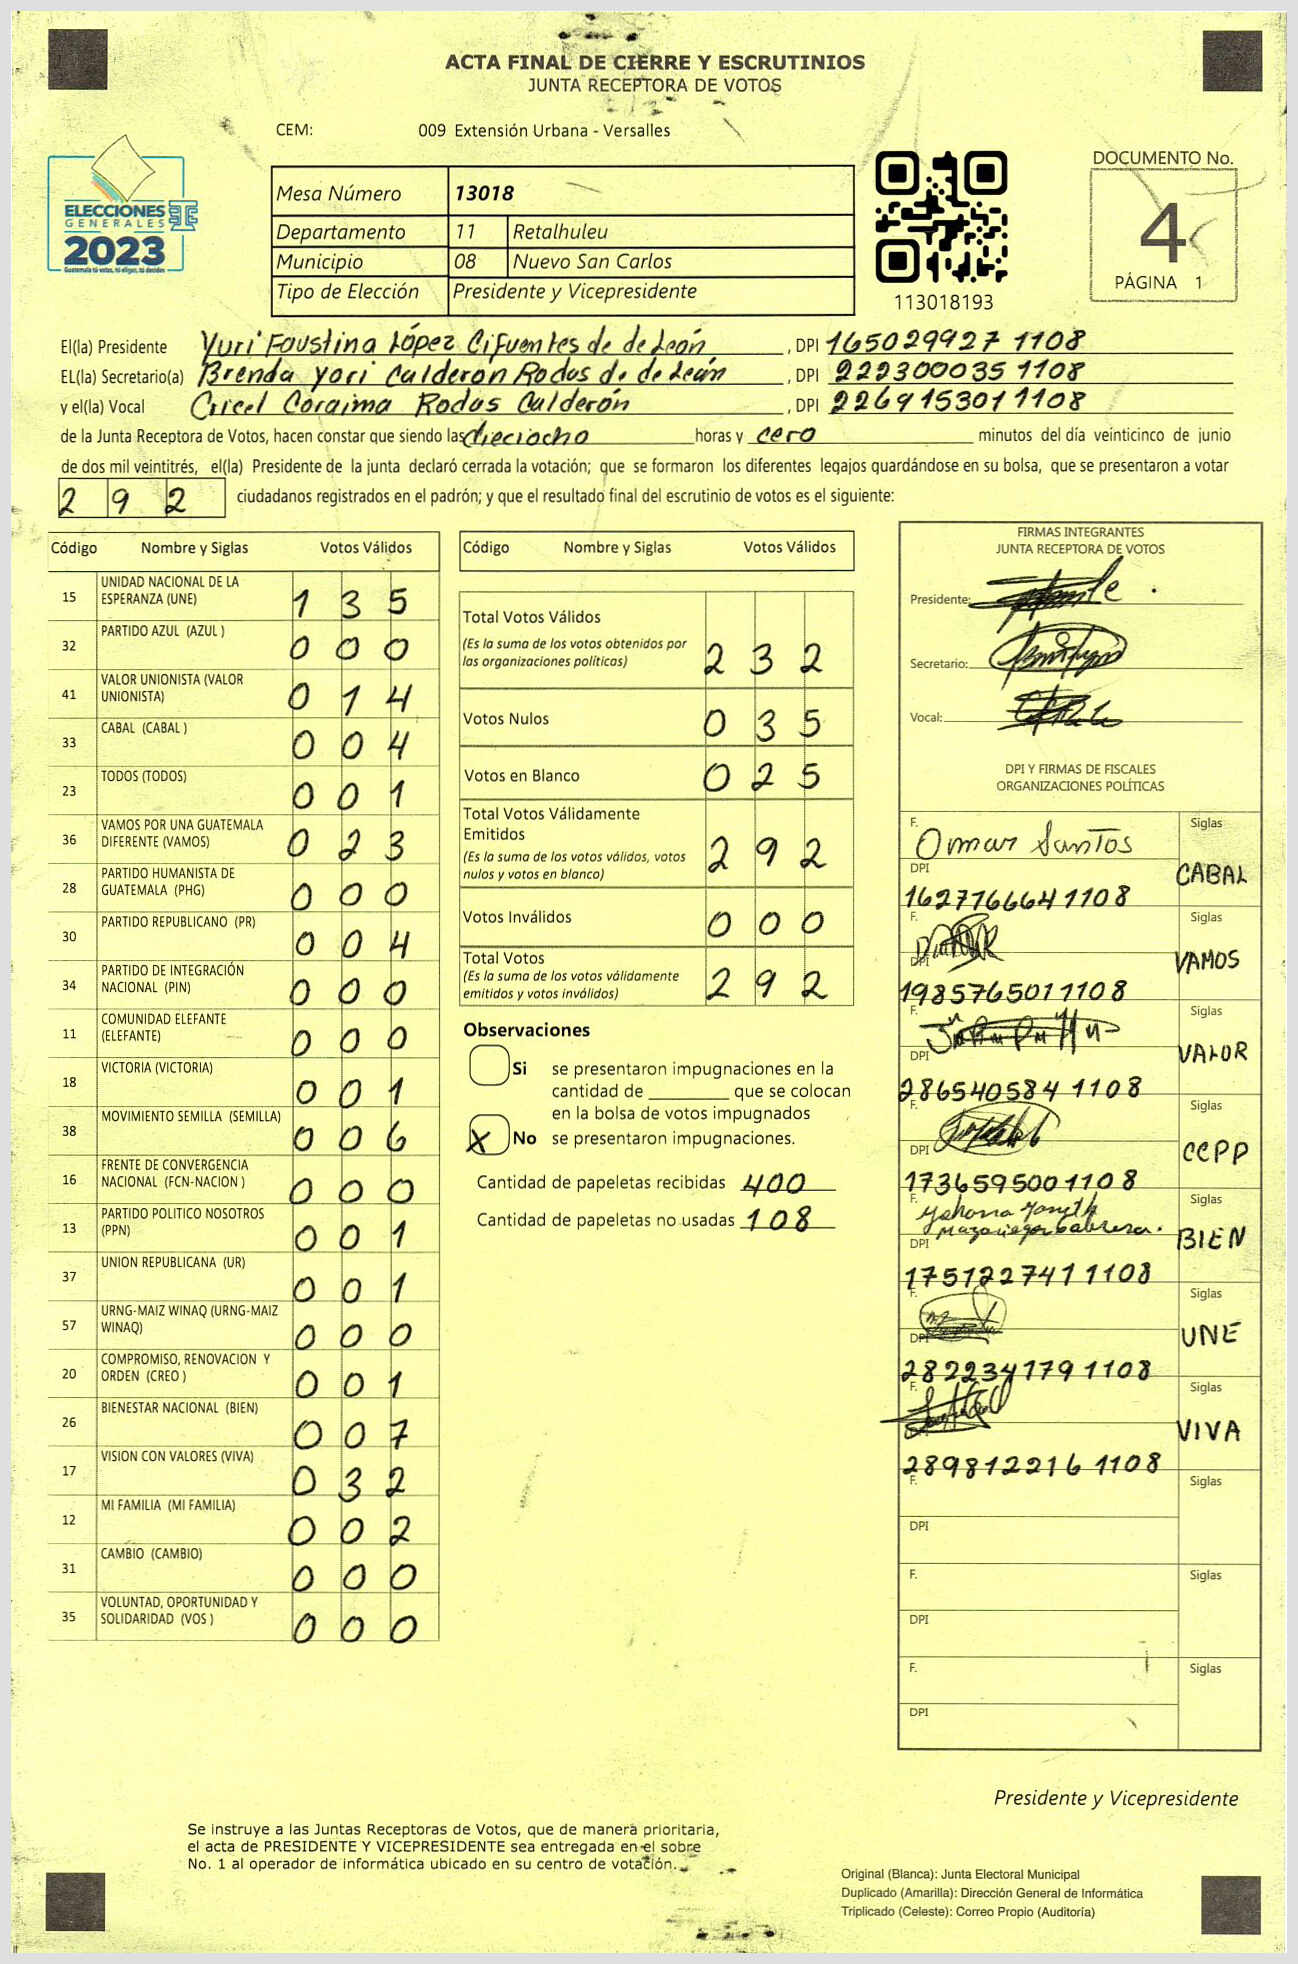 ACTA FINAL DE CIERRE Y ESCRUTINIOS
JUNTA RECEPTORA DE VOTOS
CEM: 009 Extensión Urbana - Versalles
ELECCIONES
GENERALES
2023
Guatemala tú votas, tú eliges, tú decides
Mesa Número 13018
Departamento 11 Retalhuleu
Municipio 08 Nuevo San Carlos
Tipo de Elección Presidente y Vicepresidente
113018193
DOCUMENTO No.
4
PÁGINA 1
El(la) Presidente Yuri Faustina López Cifuentes de de León, DPI 165029927 1108
EL(la) Secretario(a) Brenda Yori Calderón Rodas de de León, DPI 222300035 1108
y el(la) Vocal Cricel Coraima Rodas Calderón, DPI 226915301 1108
de la Junta Receptora de Votos, hacen constar que siendo las dieciocho horas y cero minutos del día veinticinco de junio
de dos mil veintitrés, el(la) Presidente de la junta declaró cerrada la votación; que se formaron los diferentes legajos guardándose en su bolsa, que se presentaron a votar
292 ciudadanos registrados en el padrón; y que el resultado final del escrutinio de votos es el siguiente:
Código Nombre y Siglas Votos Válidos
15 UNIDAD NACIONAL DE LA
ESPERANZA (UNE) 1 3 5
32 PARTIDO AZUL (AZUL ) 0 0 0
41 VALOR UNIONISTA (VALOR
UNIONISTA) 0 1 4
33 CABAL (CABAL ) 0 0 4
23 TODOS (TODOS) 0 0 1
36 VAMOS POR UNA GUATEMALA
DIFERENTE (VAMOS) 0 2 3
28 PARTIDO HUMANISTA DE
GUATEMALA (PHG) 0 0 0
30 PARTIDO REPUBLICANO (PR) 0 0 4
34 PARTIDO DE INTEGRACIÓN
NACIONAL (PIN) 0 0 0
11 COMUNIDAD ELEFANTE
(ELEFANTE) 0 0 0
18 VICTORIA (VICTORIA) 0 0 1
38 MOVIMIENTO SEMILLA (SEMILLA) 0 0 6
16 FRENTE DE CONVERGENCIA
NACIONAL (FCN-NACION ) 0 0 0
13 PARTIDO POLITICO NOSOTROS
(PPN) 0 0 1
37 UNION REPUBLICANA (UR) 0 0 1
57 URNG-MAIZ WINAQ (URNG-MAIZ
WINAQ) 0 0 0
20 COMPROMISO, RENOVACION Y
ORDEN (CREO ) 0 0 1
26 BIENESTAR NACIONAL (BIEN) 0 0 7
17 VISION CON VALORES (VIVA) 0 3 2
12 MI FAMILIA (MI FAMILIA) 0 0 2
31 CAMBIO (CAMBIO) 0 0 0
35 VOLUNTAD, OPORTUNIDAD Y
SOLIDARIDAD (VOS ) 0 0 0
Código Nombre y Siglas Votos Válidos
Total Votos Válidos
(Es la suma de los votos obtenidos por
las organizaciones políticas) 2 3 2
Votos Nulos 0 3 5
Votos en Blanco 0 2 5
Total Votos Válidamente
Emitidos
(Es la suma de los votos válidos, votos
nulos y votos en blanco) 2 9 2
Votos Inválidos 0 0 0
Total Votos
(Es la suma de los votos válidamente
emitidos y votos inválidos) 2 9 2
Observaciones
Si se presentaron impugnaciones en la
cantidad de ________ que se colocan
en la bolsa de votos impugnados
X No se presentaron impugnaciones.
Cantidad de papeletas recibidas 400
Cantidad de papeletas no usadas 108
FIRMAS INTEGRANTES
JUNTA RECEPTORA DE VOTOS
Presidente:
Secretario:
Vocal:
DPI Y FIRMAS DE FISCALES
ORGANIZACIONES POLÍTICAS
F. Omar Santos Siglas
DPI 162776664 1108 CABAL
F. Siglas
DPI 198576501 1108 VAMOS
F. Siglas
DPI 286540584 1108 VALOR
F. Siglas
DPI 173659500 1108 CCPP
F. Siglas
DPI 175122741 1108 BIEN
F. Siglas
DPI 282234179 1108 UNE
F. Siglas
289812216 1108 VIVA
F. Siglas
DPI
F. Siglas
DPI
F. Siglas
DPI
Presidente y Vicepresidente
Se instruye a las Juntas Receptoras de Votos, que de manera prioritaria,
el acta de PRESIDENTE Y VICEPRESIDENTE sea entregada en el sobre
No. 1 al operador de informática ubicado en su centro de votación.
Original (Blanca): Junta Electoral Municipal
Duplicado (Amarilla): Dirección General de Informática
Triplicado (Celeste): Correo Propio (Auditoría)